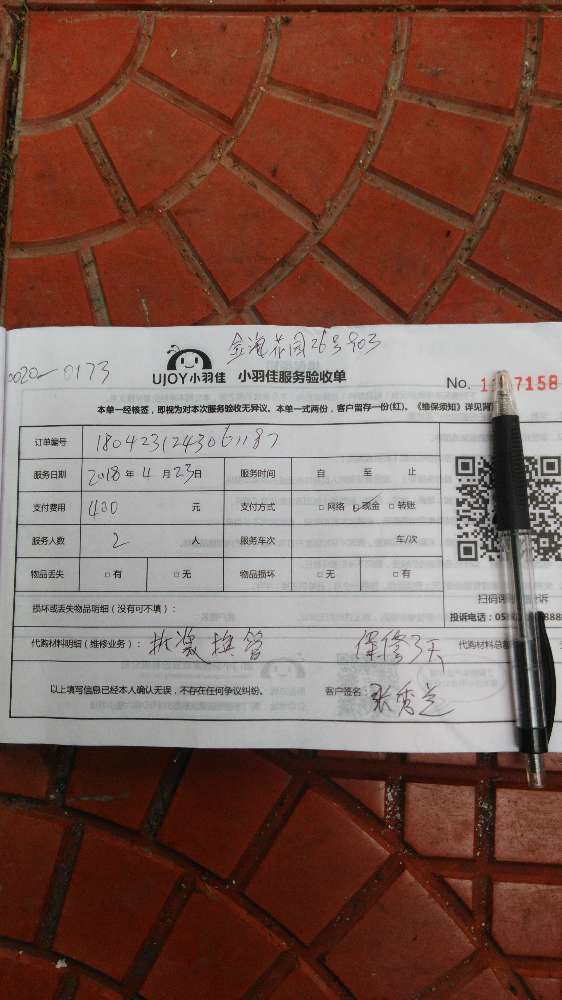 金海花园26号903
0020-0173
UJOY小羽佳 小羽佳服务验收单
No. 7158
本单一经核签，即视为对本次服务验收无异议。本单一式两份，客户留存一份(红)。《维保须知》详见背
订单编号 1804231243061187
服务日期 2018 年 4 月 23 日 服务时间 自 至 止
支付费用 400 元 支付方式 □网络 ☑现金 □转账
服务人数 2 人 服务车次 车/次
物品丢失 □有 □无 物品损坏 □无 □有
扫码 诉
损坏或丢失物品明细（没有可不填）：
投诉电话：05 888
代购材料明细（维修业务）： 拆装换管 保修3天 代购材料总
以上填写信息已经本人确认无误，不存在任何争议纠纷。 客户签名： 张秀芝